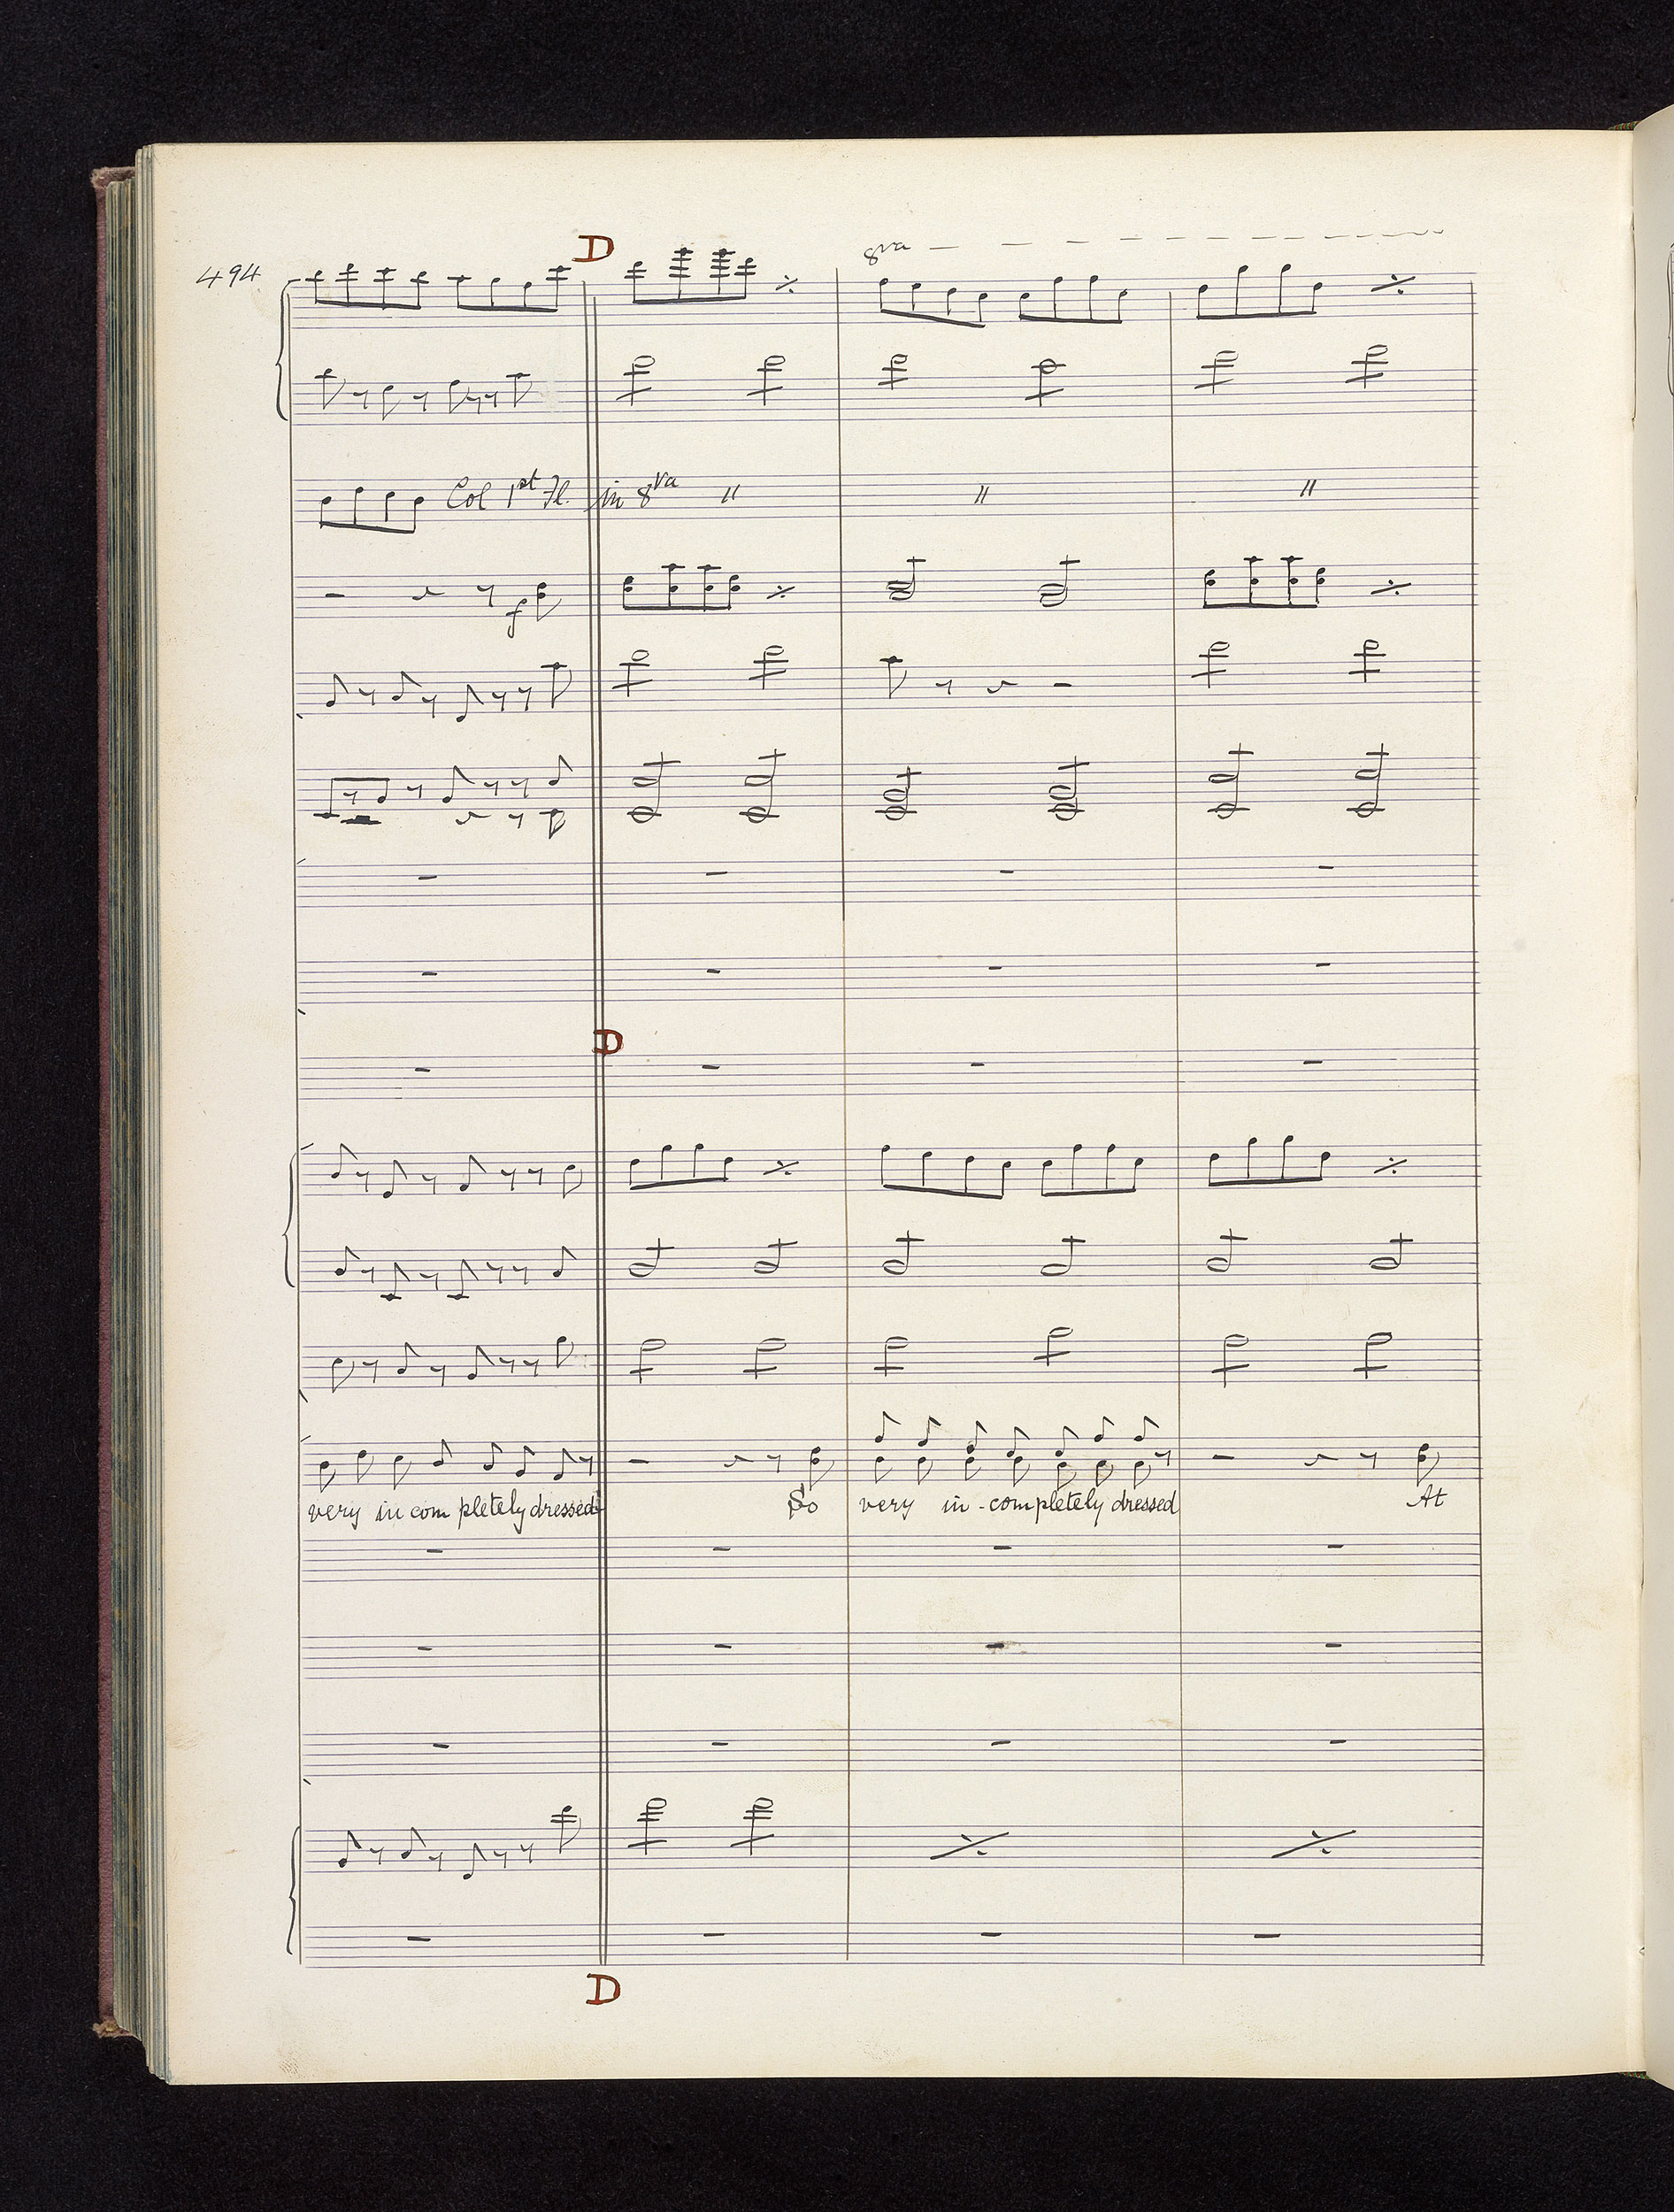 D
8va
494
Col 1st Fl. in 8va " " "
f
D
very in com pletely dressed So very in - completely dressed At
D